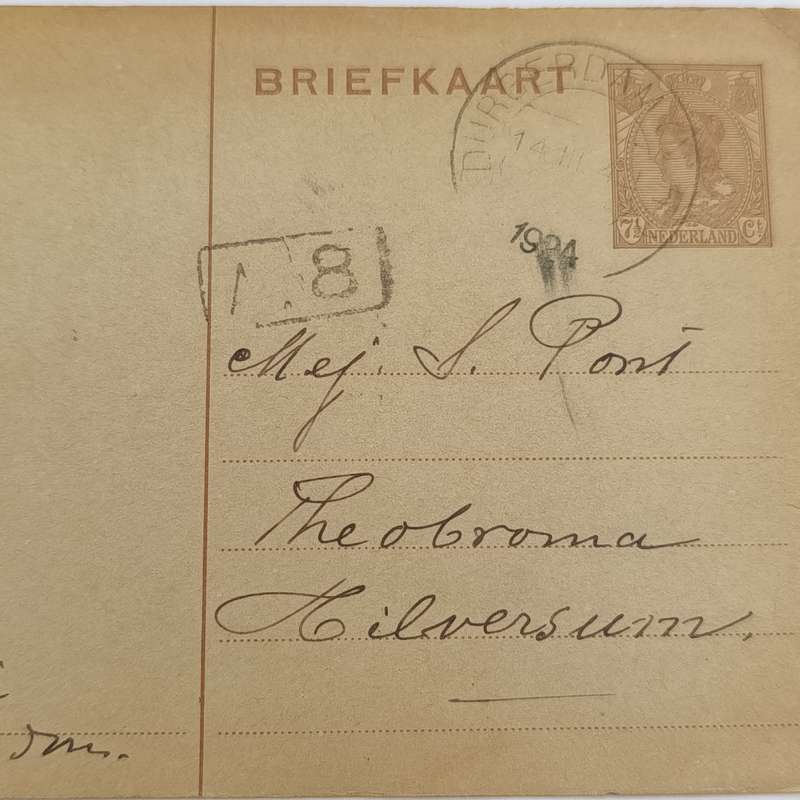 BRIEFKAART
DURGERDAM
1924
7½ NEDERLAND Ct
8
Mej. S. Pont
Theobroma
Hilversum.